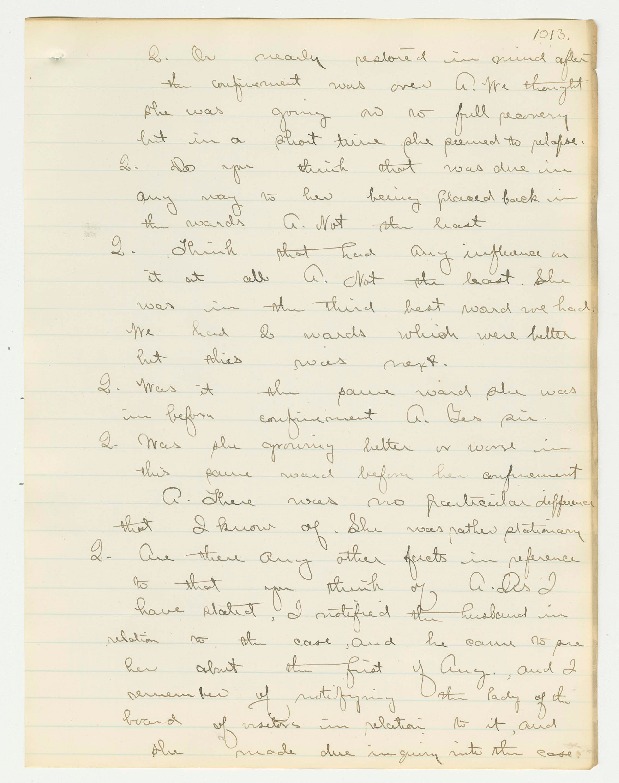 1013.
Q. Or nearly restored in mind after
the confinement was over A. We thought
she was going on to full recovery
but in a short time she seemed to relapse.
Q. Do you think that was due in
any way to her being placed back in
the wards A. Not the least
Q. Think that had any influence on
it at all A. Not the least. She
was in the third best ward we had.
We had 2 wards which were better
but this was next.
Q. Was it the same ward she was
in before confinement A. Yes sir
Q. Was she growing better or worse in
this same ward before her confinement
A. There was no particular difference
that I know of. She was, rather stationary
Q. Are there any other facts in reference
to that you think of A. As I
have stated, I notified the husband in
relation to the case, and he came to see
her about the first of Aug., and I
remember of notifying the lady of the
board of visitors in relation to it, and
she made due inquiry into the case